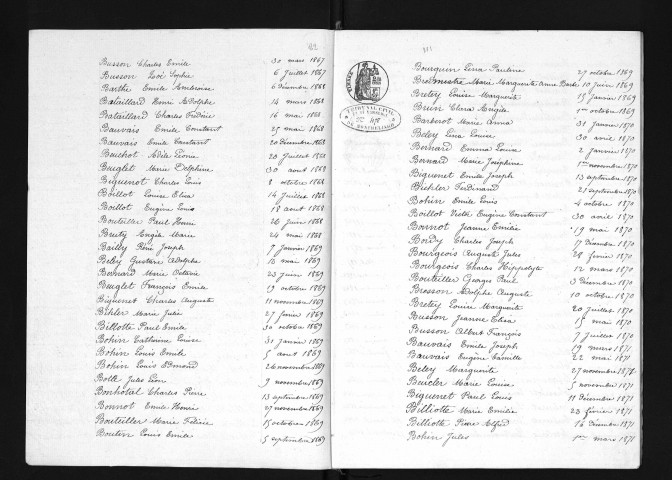 Busson Charles Emile 30 mars 1867
Busson Zoé Sophie 6 juillet 1867
Barthe Emile Ambroise 6 décembre 1868
Bataillard Henri Adolphe 14 mars 1868
Bataillard Charles Frédéric 16 mai 1868
Bauvais Emile Constant 25 mai 1868
Bauvais Emile Constant 20 décembre 1868
Bouchot Adèle Léonie 23 juillet 1868
Buuglet Marie Delphine 30 août 1868
Biguenet Charles Louis 8 octobre 1868
Boillot Louise Elisa 14 juillet 1868
Boillot Eugène Louis 18 août 1868
Bouteiller Paul Henri 26 juin 1868
Bretey Angèle Marie 24 mai 1868
Bailly René Joseph 7 janvier 1869
Beley Gustave Adolphe 15 mai 1869
Bernard Marie Octavie 23 juin 1869
Beuglet François Emile 19 octobre 1869
Biguenet Charles Auguste 11 novembre 1869
Bihler Marie Julie 27 janvier 1869
Billotte Paul Emile 30 octobre 1869
Bohin Catherine Louise 30 janvier 1869
Bohin Louis Emile 5 août 1869
Bohin Louis Edmond 26 novembre 1869
Bolle Jules Léon 9 novembre 1869
Bonhotal Charles Pierre 13 septembre 1869
Bonnot Emile Henri 27 novembre 1869
Bouteiller Marie Félicie 15 octobre 1869
Boutin Louis Emile 5 septembre 1869
TRIBUNAL CIVIL
Bourquin Lina Pauline 27 octobre 1869
Bredmestre Marie Marguerite Anne Barbe 10 juin 1869
Bretey Louise Marguerite 15 janvier 1869
Brun Elina Angèle 1er octobre 1869
Barberot Marie Anna 31 janvier 1870
Beley Lina Louise 30 avril 1870
Bernard Emma Louise 2 janvier 1870
Bernard Marie Joséphine 1er novembre 1870
Biguenet Emile Joseph 13 septembre 1870
Biehler Ferdinand 21 septembre 1870
Bohin Emile Louis 4 octobre 1870
Boillot Victor Eugène Constant 30 avril 1870
Bonnot Jeanne Emilie 19 mai 1870
Bondy Charles Joseph 17 décembre 1870
Bourgeois Auguste Jules 28 février 1870
Bourgeois Charles Hippolyte 12 mars 1870
Bouteiller Georges René 3 décembre 1870
Brosson Adolphe Auguste 10 octobre 1870
Bretey Louise Marguerite 20 juillet 1870
Busson Jeanne Elisa 15 mai 1870
Busson Albert François 7 juillet 1870
Bauvais Emile Joseph 19 mars 1871
Bauvais Eugène Camille 22 mai 1871
Beley Marguerite 27 novembre 1871
Beucler Marie Louisa 5 novembre 1871
Biguenet Paul Louis 11 décembre 1871
Billiotte Marie Emilie 23 février 1871
Billiotte Pierre Alfred 16 décembre 1871
Bohin Jules 1er mars 1871